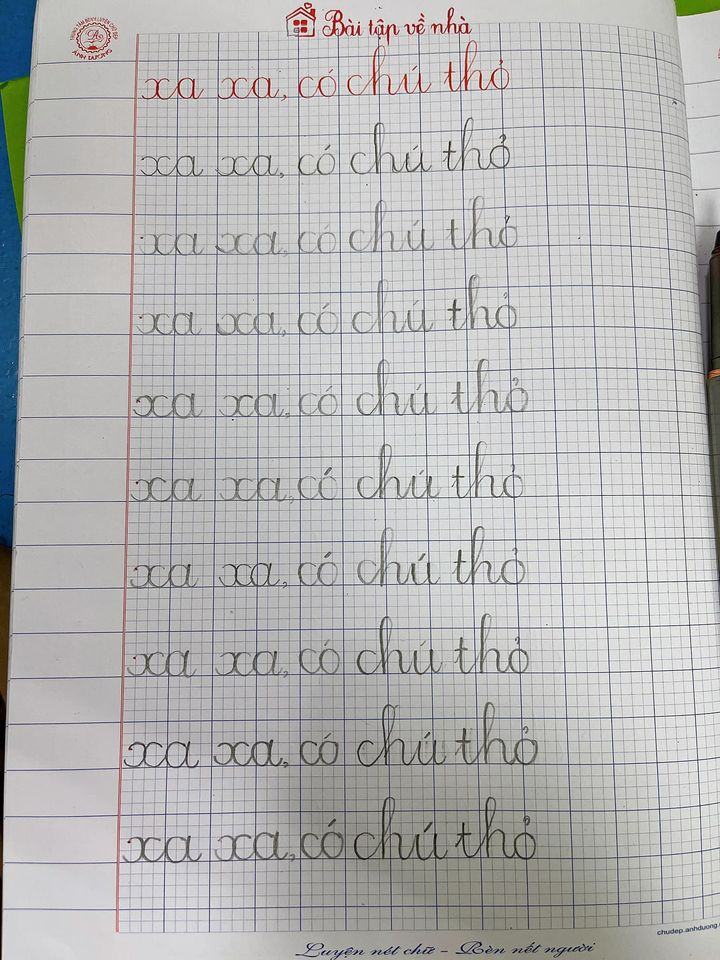 TRUNG TÂM MINH LUYỆN CHỮ ĐẸP
ÁNH DƯƠNG
Bài tập về nhà
xa xa, có chú thỏ
xa xa, có chú thỏ
xa xa, có chú thỏ
xa xa, có chú thỏ
xa xa, có chú thỏ
xa xa, có chú thỏ
xa xa, có chú thỏ
xa xa, có chú thỏ
xa xa, có chú thỏ
xa xa, có chú thỏ
chudep.anhduong.
Luyện nét chữ - Rèn nết người